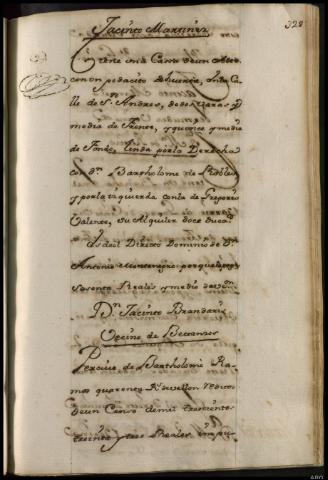 328
Jacinto Martinez
tiene una Casa de un Alto
con un pedacito de huerta, en la Ca
lle de Sn. Andres, de dos Varas y
media de frente, y quince y media
de fondo, linda por la Derecha
con dn. Bartholome de Robles
y por la izquierda con la de Gregorio
Valente, su Alquiler doce Ducados
Es del Directo Dominio de Dn.
Antonio por que le paga
Sesenta Reales y medio de vn.
Dn. Jacinto Brandariz
Vecino de Betanzos
Percive de Bartholomé Ra
mos quarenta Rs. de vellon reditos
de un Censo de mil trescientos
treinta y tres Reales impues